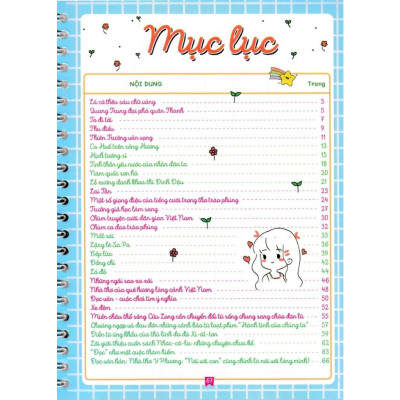 Mục lục
NỘI DUNG Trang
Lá cờ thêu sáu chữ vàng 3
Quang Trung đại phá quân Thanh 5
Ta đi tới 7
Thu điếu 9
Thiên Trường vãn vọng 11
Ca Huế trên sông Hương 13
Hịch tướng sĩ 15
Tinh thần yêu nước của nhân dân ta 18
Nam quốc sơn hà 20
Lễ xướng danh khoa thi Đinh Dậu 21
Lai Tân 23
Một số giọng điệu của tiếng cười trong thơ trào phúng 24
Trưởng giả học làm sang 27
Chùm truyện cười dân gian Việt Nam 29
Chùm ca dao trào phúng 31
Mắt sói 33
Lặng lẽ Sa Pa 36
Bếp lửa 39
Đồng chí 42
Lá đỏ 44
Những ngôi sao xa xôi 46
Nhà thơ của quê hương làng cảnh Việt Nam 48
Đọc văn - cuộc chơi tìm ý nghĩa 50
Xe đêm 52
Miền châu thổ sông Cửu Long cần chuyển đổi từ sống chung sang chào đón lũ 55
Choáng ngợp và đau đớn những cảnh báo từ loạt phim "Hành tinh của chúng ta" 57
Diễn từ ứng khẩu của thủ lĩnh da đỏ Xi-át-tơn 59
Lời giới thiệu cuốn sách
62
"Đọc" như một cuộc thám hiểm 63
Đọc văn bản: Nhà thơ Y Phương: "Nói với con" cũng chính là nói với lòng mình! 66
67